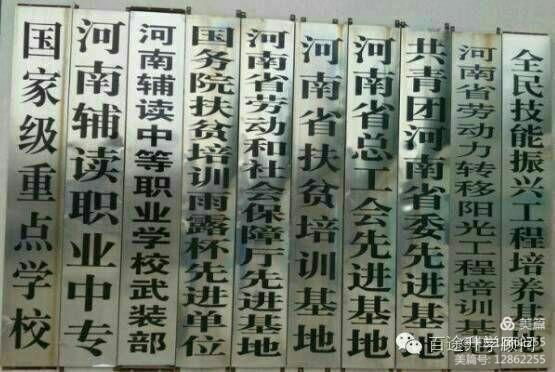 国家级重点学校
河南辅读职业中专
河南辅读中等职业学校武装部
国务院扶贫培训雨露杯先进单位
河南省劳动和社会保障厅先进基地
河南省扶贫培训基地
河南省总工会先进基地
共青团河南省委先进基地
河南省劳动力转移阳光工程培训基
全民技能振兴工程培养基
美篇
百途升学顾问
美篇号: 12862255